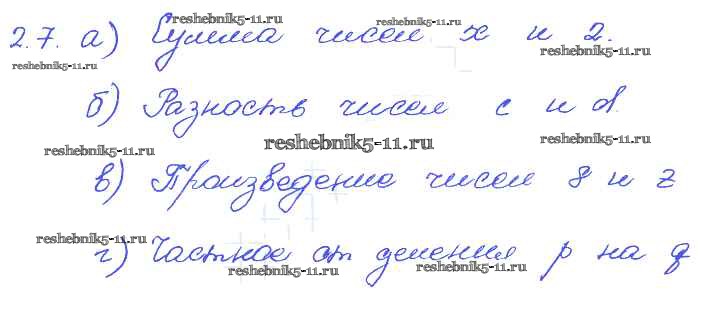 reshebnik5-11.ru reshebnik5-11.ru
2.7. а) Сумма чисел x и 2.
reshebnik5-11.ru reshebnik5-11.ru
б) Разность чисел c и d.
reshebnik5-11.ru reshebnik5-11.ru reshebnik5-11.ru
в) Произведение чисел 8 и z
reshebnik5-11.ru
г) Частное от деления p на q
reshebnik5-11.ru reshebnik5-11.ru